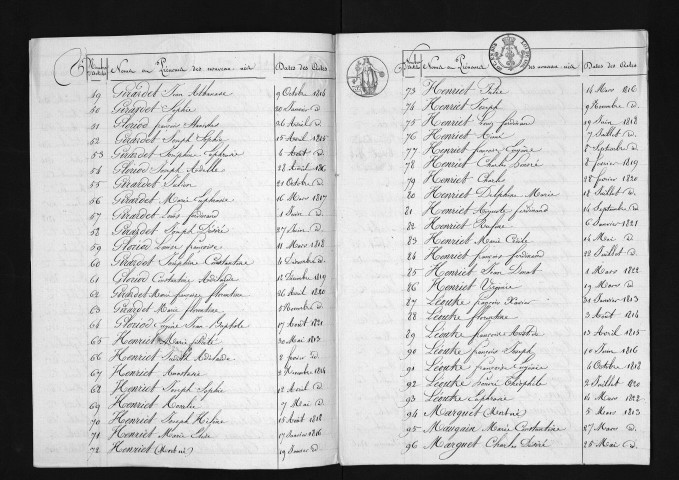 Noms et Prénoms des nouveaux nés Dates des Actes
49 Girardet Jean Athanase 9 Octobre 1814
50 Girardet Sophie 20 Janvier d.
51 Gloriod françois Stanislas 26 Avril d.
52 Girardet Joseph Sophie 15 Avril 1815
53 Girardet Josephine Euphrasie 6 Aout d.
54 Gloriod Joseph Adelle 28 1816
55 Girardet Salin 21 Octobre d.
56 Girardet Marie Euphrasie 16 Mars 1817
57 Girardet Louis ferdinand 1 Juin d.
58 Girardet Joseph Désiré 27 Juin d.
59 Gloriod Louise françoise 11 Mars 1818
60 Girardet Josephine Constantine 6 Décembre d.
61 Gloriod Constantine Adélaïde 12 Décembre 1819
62 Girardet Marie françoise florentine 26 Avril 1820
63 Girardet Marie florentine 8 Novembre d.
64 Gloriod Eugène Jean Baptiste 07 Aout 1821
65 Henriet Marie félicité 30 Mai 1813
66 Henriet Judith Adélaïde 2 février d.
67 Henriet Anastasie 2 Novembre 1814
68 Henriet Joseph Sophie 12 Avril d.
69 Henriet 7 Mai d.
70 Henriet Joseph 15 Aout 1812
71 Henriet Marie Élise 17 Janvier 1816
72 Henriet (Mort né) 19 Janvier d.
Noms et Prénoms des nouveaux nés Dates des Actes
73 Henriet 14 Mars 1816
74 Henriet Joseph 9 Novembre d.
75 Henriet Louis ferdinand 19 Juin 1818
76 Henriet 7 Juillet d.
77 Henriet françois Eugène 8 Septembre d.
78 Henriet Charles Désiré 8 février 1819
79 Henriet Charles 28 février 1820
80 Henriet Delphine Marie 12 Juillet d.
81 Henriet Auguste ferdinand 14 Septembre d.
82 Henriet Rufine 6 Janvier 1821
83 Henriet Marie Cécile 14 Mai d.
84 Henriet françois ferdinand 22 Juillet d.
85 Henriet Jean Donat 1 Mars 1822
86 Henriet Virginie 19 Mars d.
87 Léoutre françois Xavier 31 Janvier 1813
88 Léoutre florentine 3 Aout 1814
89 Léoutre françois Aristide 13 Avril 1815
90 Léoutre françois Joseph 10 Juin 1816
91 Léoutre françoise Eugénie 4 Octobre 1818
92 Léoutre Désiré Théophile 2 Juillet 1820
93 Léoutre Euphrasie 14 Mars 1822
94 Marguet (Mort né) 5 Mars 1813
95 Maugain Marie Constantine 27 Mars d.
96 Marguet Charles Désiré 25 Mai d.